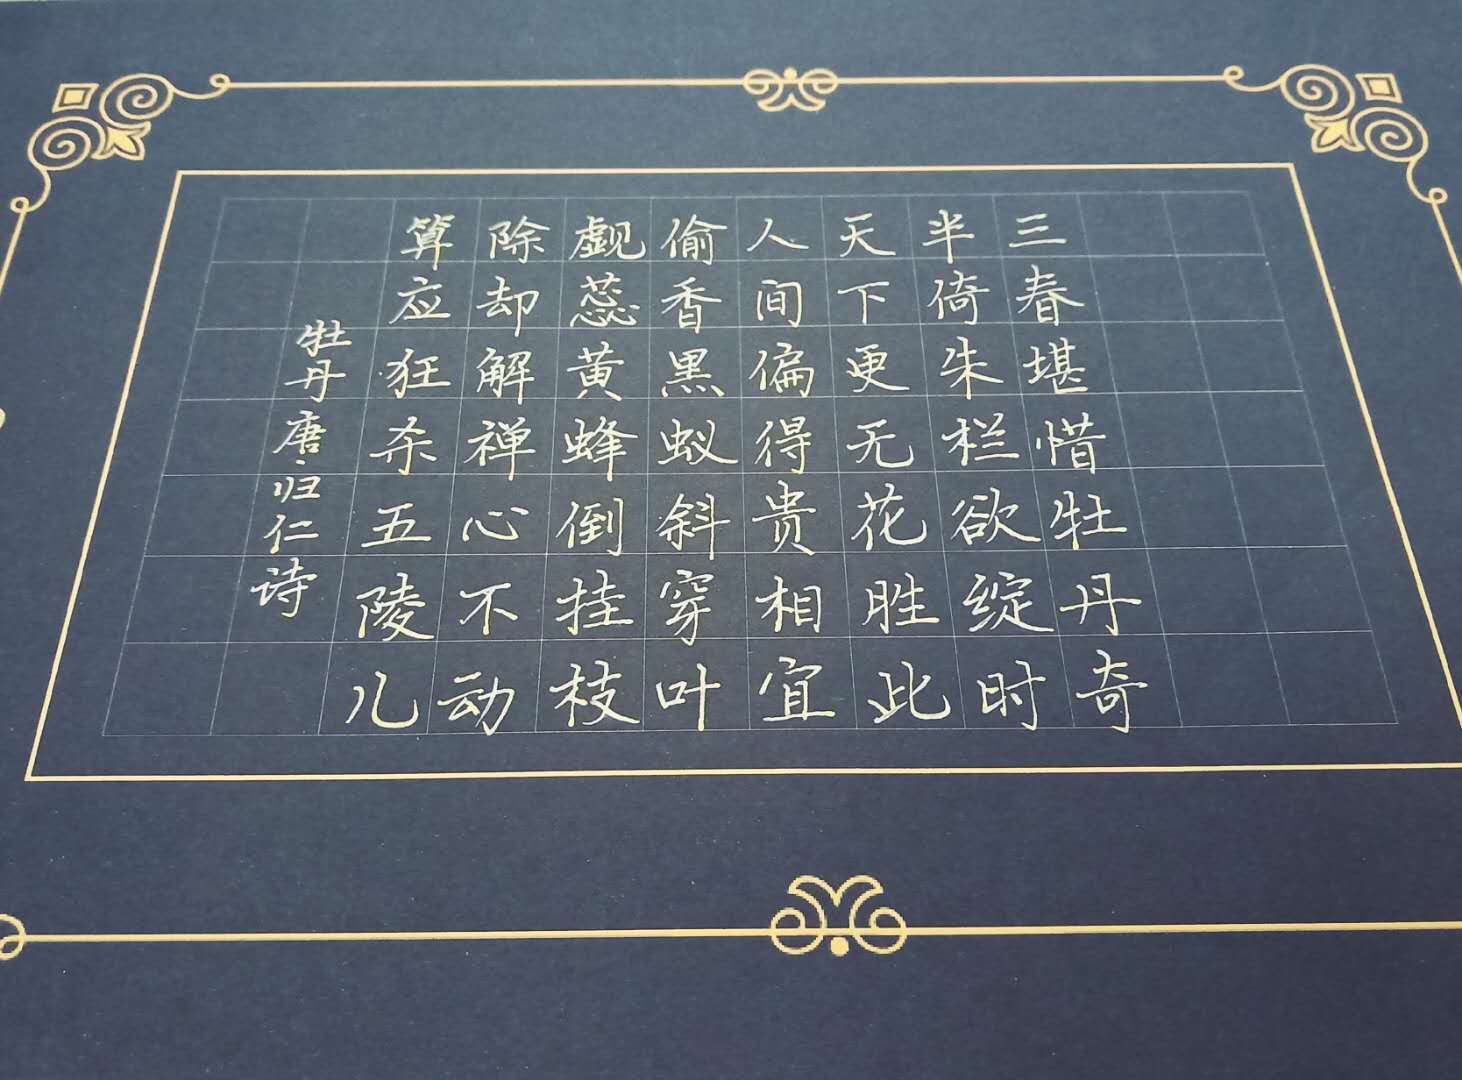 三春堪惜牡丹奇
半倚朱栏欲绽时
天下更无花胜此
人间偏得贵相宜
偷香黑蚁斜穿叶
觑蕊黄蜂倒挂枝
除却解禅心不动
算应狂杀五陵儿
牡丹 唐·归仁诗